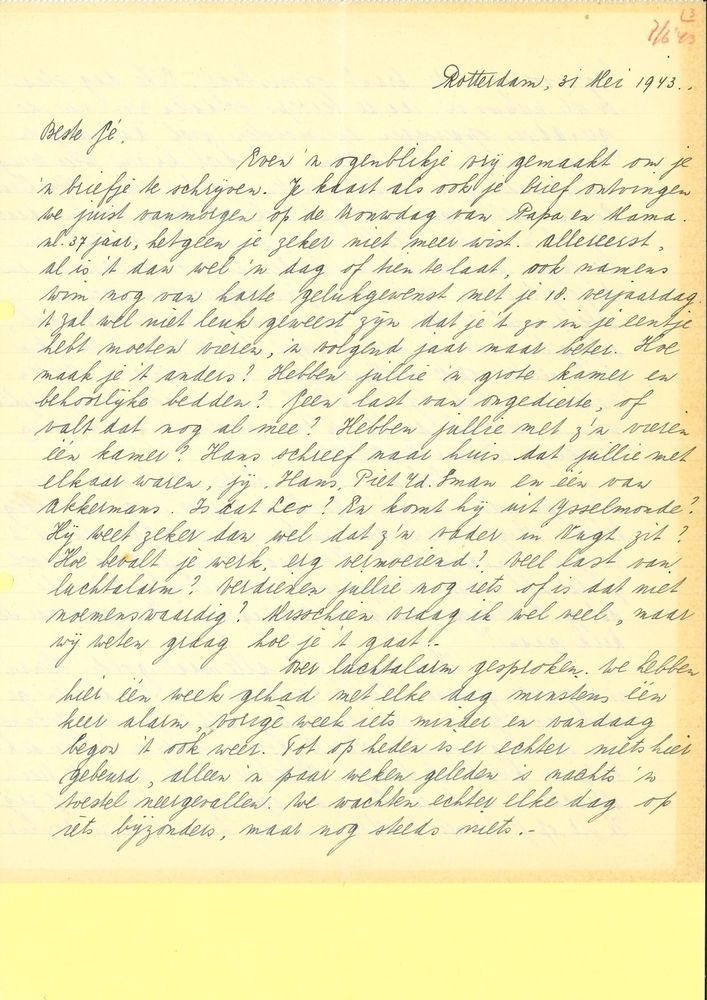 13
7/6 '43
Rotterdam, 31 Mei 1943.
Beste Gé.
Even 'n ogenblikje vrij gemaakt om je
'n briefje te schrijven. Je kaart als ook je brief ontvingen
we juist vanmorgen op de trouwdag van Papa en Mama.
nl. 37 jaar, hetgeen je zeker niet meer wist. Allereerst,
al is 't dan wel 'n dag of tien te laat, ook namens
Wim nog van harte gelukgewenst met je 18. verjaardag.
't zal wel niet leuk geweest zijn dat je 't zo in je eentje
hebt moeten vieren, 'n volgend jaar maar beter. Hoe
maak je 't anders? Hebben jullie 'n grote kamer en
behoorlijke bedden? Geen last van ongedierte, of
valt dat nog al mee? Hebben jullie met z'n vieren
één kamer? Hans schreef naar huis dat jullie met
elkaar waren, jij, Hans, Piet v.d. Eman en één van
Akkermans. Is dat Leo? En komt hij uit IJsselmonde?
Hij weet zeker dan wel dat z'n vader in Vugt zit?
Hoe bevalt je werk, erg vermoeiend? Veel last van
luchtalarm? Verdienen jullie nog iets of is dat niet
noemenswaardig? Misschien vraag ik wel veel, maar
wij weten graag hoe je 't gaat..
Over luchtalarm gesproken. We hebben
hier één week gehad met elke dag minstens één
keer alarm, vorige week iets minder en vandaag
begon 't ook weer. Tot op heden is er echter niets hier
gebeurd, alleen 'n paar weken geleden is nachts 'n
toestel neergevallen. We wachten echter elke dag op
iets bijzonders, maar nog steeds niets.-